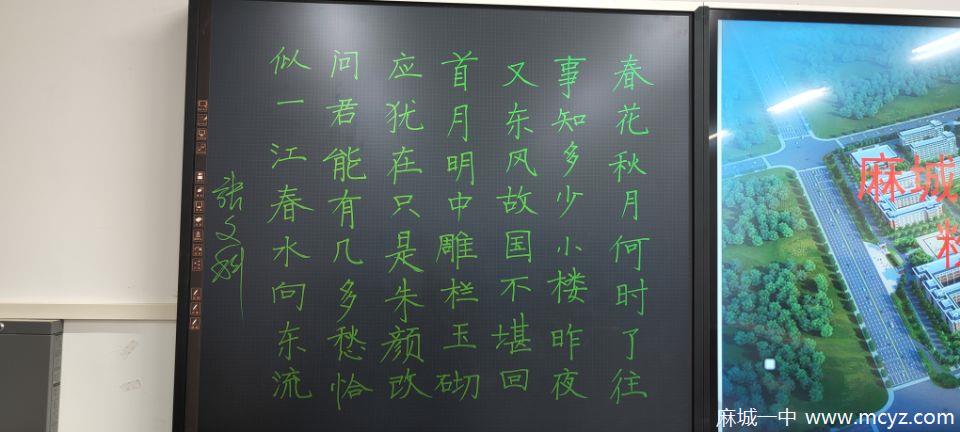 春花秋月何时了往
事知多少小楼昨夜
又东风故国不堪回
首月明中雕栏玉砌
应犹在只是朱颜改
问君能有几多愁恰
似一江春水向东流
张文
麻城
麻城一中 www.mcyz.com